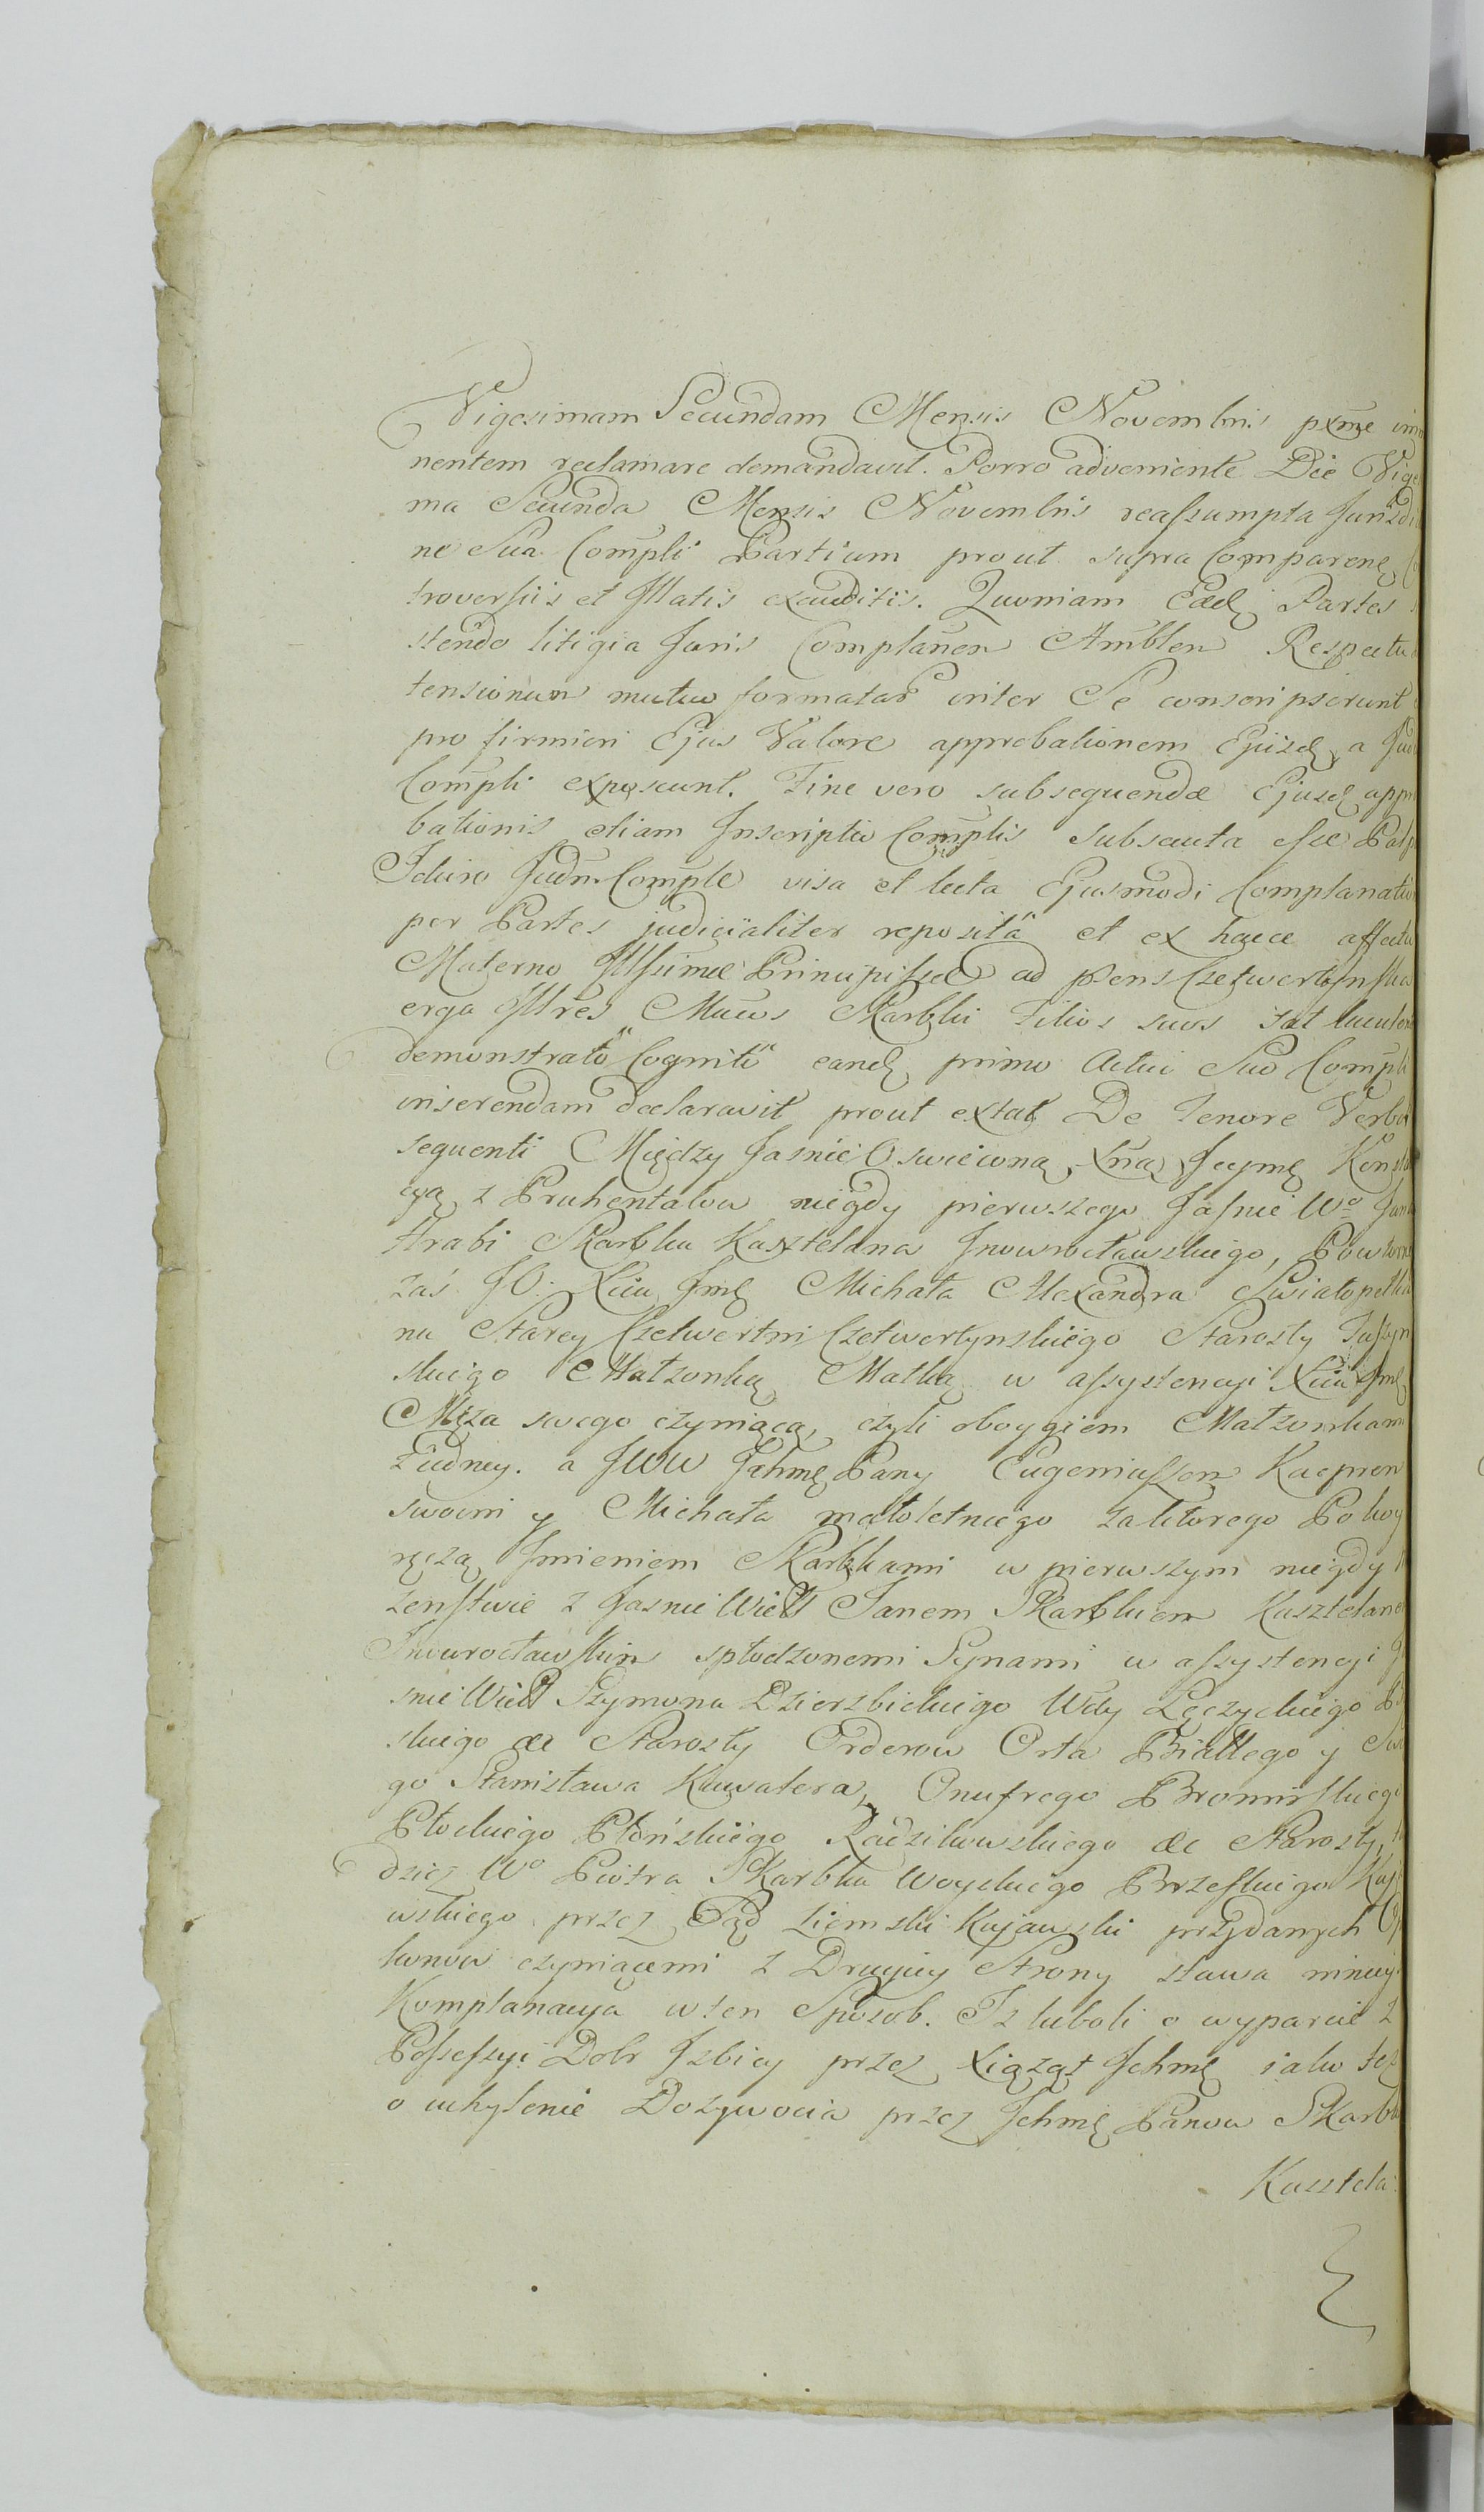 Vigesimam Secundam Mensis Novembris pxme im
nentem reclamare demandavit. Porro adveniente Die Vige
ma Secunda Mensis Novembris reassumpta Jurisdi
ne Sua Compli Partium prout supra Comparen
troversiis et Illatis exauditis. Quoniam Eaed Partes
stendo litigia Juris Complanen Amblen Respectu
tensionum mutuo formatar inter Se conscripserunt
pro firmiori Ejus Valore approbationem Ejusd a Jud
Compli exposcunt. Fine vero subsequendae Ejusd appro
bationis etiam Inscriptio Complis subsecuta esse
Idcirco Judm Comple visa et lecta Ejusmodi Complanatio
per Partes judicialiter reposita et ex haece affectu
Materno Illssimae Principissae ad pens Czetwertynska
erga Illres Mcos Skarbki Filios suos sat luculen
demonstrato Cognito eand primo Actui Suo Compli
inserendam declaravit prout extat De Tenore Verbor
sequenti Między Jasnie Oswieconą Xną Jeymę Konsta
cyą z Pruhentalow niegdy pierwszego Jasnie Wo Jana
Hrabi Skarbka Kasztelana Jnowrocławskiego, Powtorne
zaś JO. Xcia Jmę Michała Alexandra Swiatopełka
na Starey Czetwertni Czetwertynskiego Starosty Tuszyn
skiego Małzonką Matką w assystencyi Xcia Jmę
Męza swego czyniącą, czyli oboygiem Małzonkami
z Jedney. a JWW Jchmę Pany Eugeniuszem Kacprem
swoim y Michała małoletniego za ktorego Pokoy
ręczą Jmieniem Skarbkami w pierwszym niegdy
zenstwie z Jasnie Wiel Janem Skarbkiem Kasztelanem
Jnowrocławskim spłodzonemi Synami w assystencyi Ja
snie Wiel Szymona Dzierzbickiego Wdy Łęczyckiego
skiego &c Starosty Orderow Orła Białłego y Swi
go Stanisława Kawalera, Onufrego Bromirskiego
Płockiego Płońskiego Radzikowskiego &c Starosty,
dziez Wo Piotra Skarbka Woyskiego Brzeskiego Kuja
wskiego przez Sąd Ziemski Kujawski przydanych Op
kunow czyniącemi z Drugiey Strony stawa ninieys
Komplanacya w ten Sposob. Iz lubo li o wyparcie z
Possessyi Dobr Jzbicy przez Xiąząt Jchmę iako tez
o uchylenie Dozywocia przez Jchmę Panow Skarbk
Kasztela